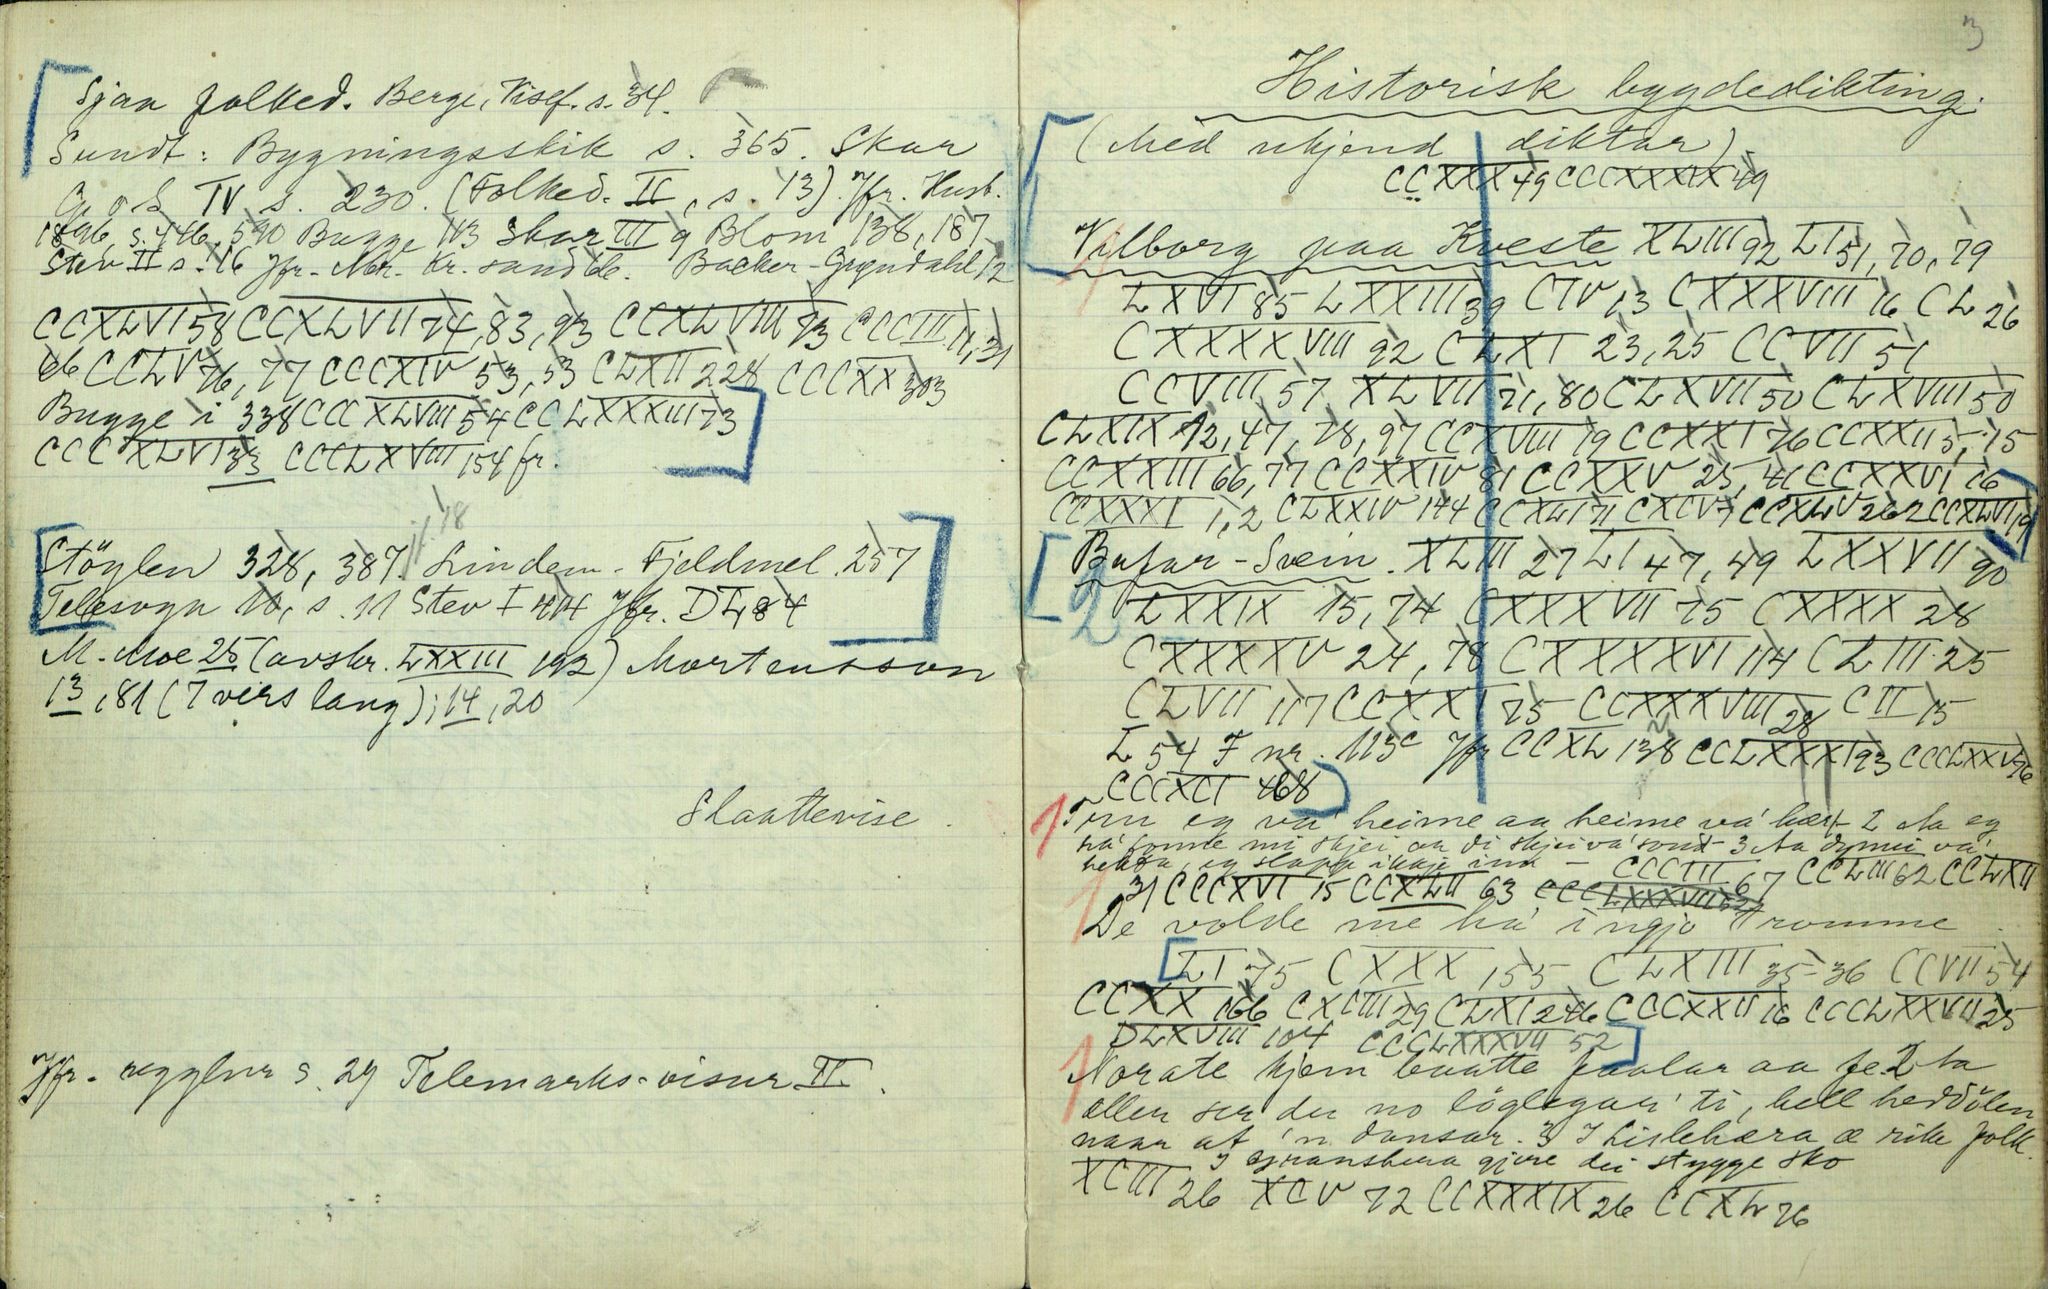 Sjaa folked. Berge, Visef. s. 34.
Sundt: Bygningsskik s. 365. Skar
G. o. S. IV s. 230. (Folked. II, s. 13) Jfr. Husb.
1896, s. 446, 590 Bugge 113 Skar III 9 Blom 138, 187
Stev II s. 16 Jfr. Nor. Kr. sand Backer-Grøndahl 12
CCXLVI 58 CCXLVII 74, 83, 93 CCXLVIII 93 CCCIII 11, 31
CCLV 76, 77 CCCXIV 53, 53 CLXII 228 CCCXX 303
Bugge i 338 CCCXLVIII 54 CCLXXXIII 73
CCCXLVI 33 CCCLXVIII 154 fr.
Stöylen 328, 387. Lindem. Fjeldmel. 257
Telesogn 10, s. 11 Stev I 404 Jfr. DL 84
M. Moe 25 (avskr. LXXIII 192) Mortensson
13, 81 (7 vers lang); 14, 20
Slaattevise.
Jfr. regglur s. 29 Telemarks-visur II.
3
Historisk bygdedikting.
(Med ukjend diktar)
CCXXX 49 CCCXXXIX 49
1 Vilborg paa Kveste XLIII 92 LI 51, 70, 79
LXVI 85 LXXIII 39 CIV 13 CXXXVIII 16 CL 26
CXXXXVIII 92 CLXI 23, 25 CCVII 51
CCVIII 57 XLVII 71, 80 CLXVII 50 CLXVIII 50
CLXIX 12, 47, 78, 97 CCXVIII 19 CCXXI 76 CCXXII 5, 15
CCXXIII 66, 77 CCXXIV 81 CCXXV 25, 46 CCXXVI 16
CCXXXI 1, 2 CLXXIV 144 CCXLI 71 CXCV 7 CCXLV 262 CCXLVI 19
2 Bufar-Svein. XLIII 27 LI 47, 49 LXXVII 90
LXXIX 15, 74 CXXXVII 75 CXXXX 28
CXXXXV 24, 78 CXXXXVI 114 CLIII 25
CLVII 117 CCXXI 75 CCXXXVIII 28 CII 15
L 54 F nr. 113c Jfr CCXL 138 CCLXXXI 93 CCCLXXV 76
CCCXCI 468
1 Fyrr eg va' heime aa heime va' 2 Aa eg
ha' somme mi skjei aa di skjei va' sond 3 Aa dynni va'
eg slapp ikkje inn – CCCIII 67 CCLIII 62 CCLXII
31 CCCXVI 15 CCXLII 63 CCCLXXXVII 52
1 De volde me ha' i ngjo Tromme
LI 75 CXXX 155 CLXIII 35-36 CCVII 54
CCXX 166 CXCIII 29 CLXI 246 CCCXXII 16 CCCLXXVII 25
DLXVIII 104 CCCLXXXVII 52
1 Norate kjem baatte paalar aa fe 2 Aa
aller ser du no löglegar' ti, hell heddölen
naar at 'n dansar. 3 I Lislehæra æ rike folk
I Granshera gjere dei stygge sko
XCIII 26 XCV 72 CCXXXIX 26 CCXL 76